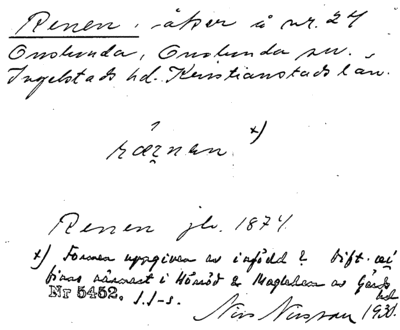 Renen, åker å nr. 24
Onslunda, Onslunda sn.
Ingelstads hd. Kristianstads län.
ræ̨nen x)
Renen jb. 1874.
x) Formen uppgiven av infödd
finns närmast i Hörröd & Maglehem av Gärds
hd
Nr 5452. s.l-s.
Nils Nilsson 1930.